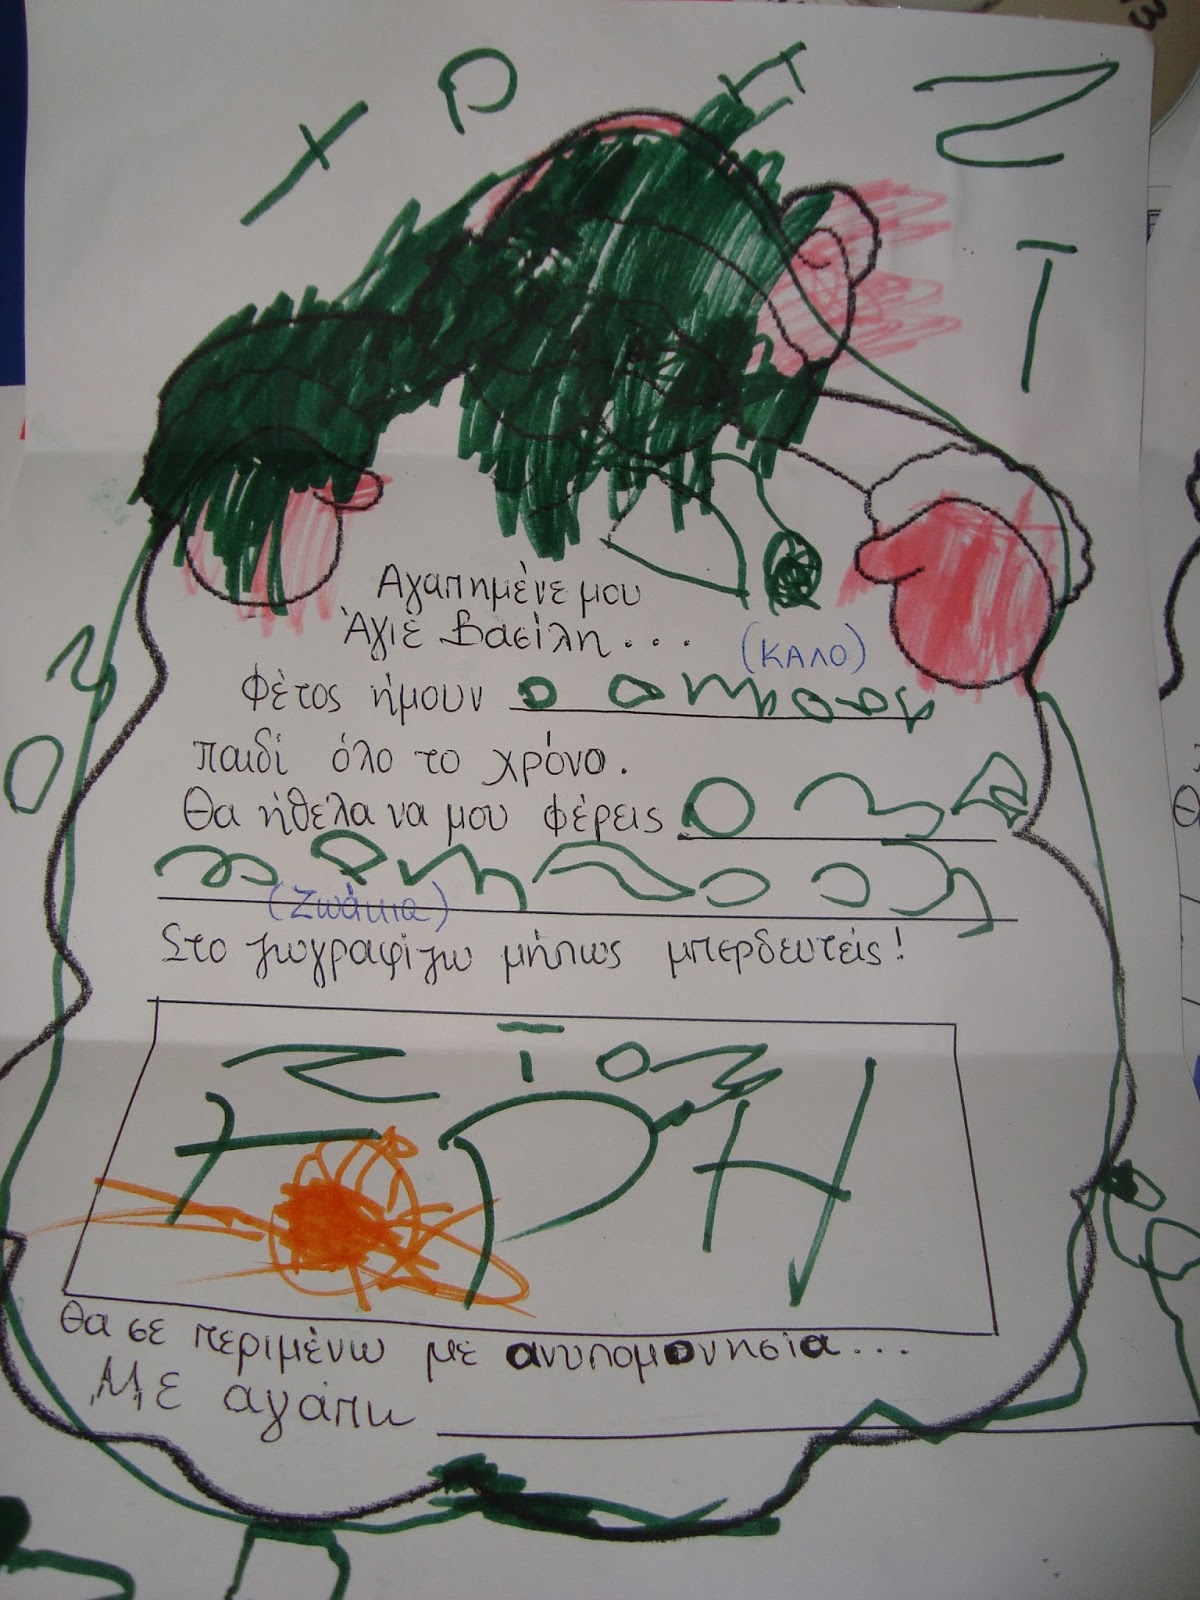 Χ Ρ Η Σ Τ Ο Σ
Αγαπημένε μου
Άγιε Βασίλη...
(ΚΑΛΟ)
Φέτος ήμουν
παιδί όλο το χρόνο.
Θα ήθελα να μου φέρεις
(Ζωάκια)
Στο ζωγραφίζω μήπως μπερδευτείς!
Σ Τ Ο Σ
Χ Ρ Η
Θα σε περιμένω με ανυπομονησία...
Με αγάπη